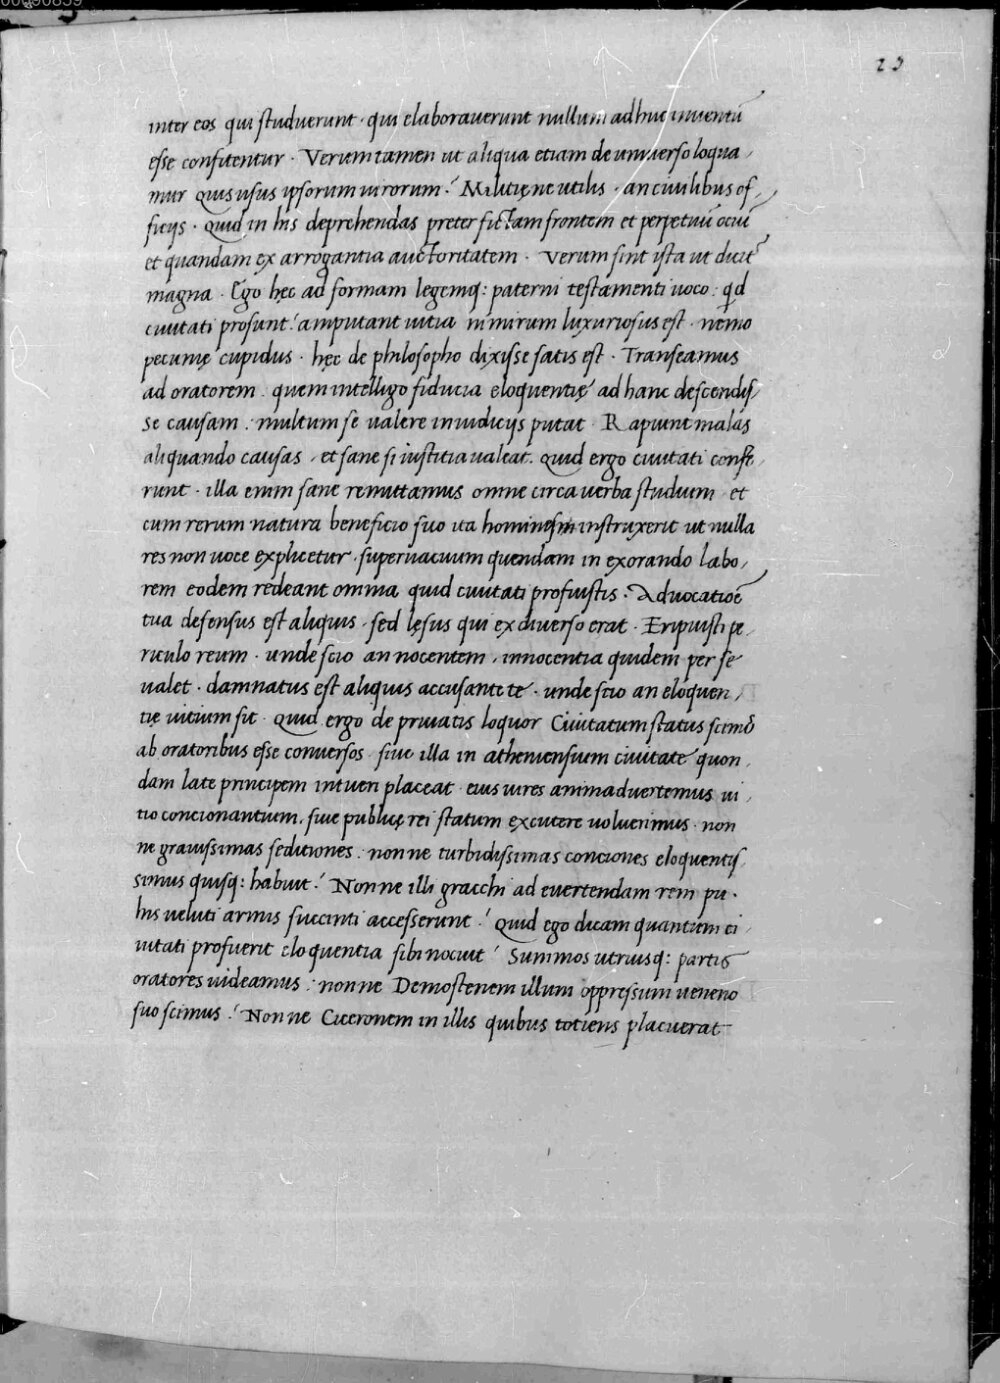 00090839
23
inter eos qui studuerunt · qui elaboraverunt nullum adhuc inventũ
esse confitentur · Verum tamen ut aliqua etiam de universo loqua,
mur quis usus ipsorum virorum? Militię ne utilis · an civilibus of,
ficijs · Quid in his deprehendas preter fictam frontem et perpetuũ ociũ
et quandam ex arrogantia auctoritatem · Verum sint ista ut dicũt
magna · Ego hęc ad formam legemq: paterni testamenti voco: qd
civitati prosunt? amputant vitia nimirum luxuriosus est · nemo
pecunię cupidus · hęc de philosopho dixisse satis est · Transeamus
ad oratorem · quem intelligo fiducia eloquentię ad hanc descendis,
se causam: multum se valere in iudicijs putat · Rapiunt malas
aliquando causas · et sane si iustitia valeat. Quid ergo civitati confe,
runt · illa enim sane remittamus omne circa verba studium et
cum rerum natura beneficio suo ita hominem instruxerit ut nulla
res non voce explicetur · supervacuum quendam in exorando labo,
rem eodem redeant omnia quid civitati profuistis · Advocatioẽ
tua defensus est aliquis · sed lęsus qui ex diverso erat · Eripuisti pe,
riculo reum · unde scio an nocentem · innocentia quidem per se
valet · damnatus est aliquis accusante te · unde scio an eloquen,
tię vitium sit · Quid ergo de privatis loquor Civitatum status scimꝰ
ab oratoribus esse conversos · sive illa in atheniensium civitate quon,
dam late principem intueri placeat · eius vires animadvertemus vi,
tio concionantium · sive publicę rei statum excutere voluerimus · non
ne gravissimas seditiones: nonne turbidissimas conciones eloquentis,
simus quisq: habuit? Nonne illi gracchi ad evertendam rem pu.
his veluti armis succinti accesserunt? Quid ego dicam quantum ci,
vitati profuerit eloquentia sibi nocuit? Summos utriusq: partis
oratores videamus: nonne Demostenem illum oppressum veneno
suo scimus? Nonne Ciceronem in illis quibus totiens placuerat